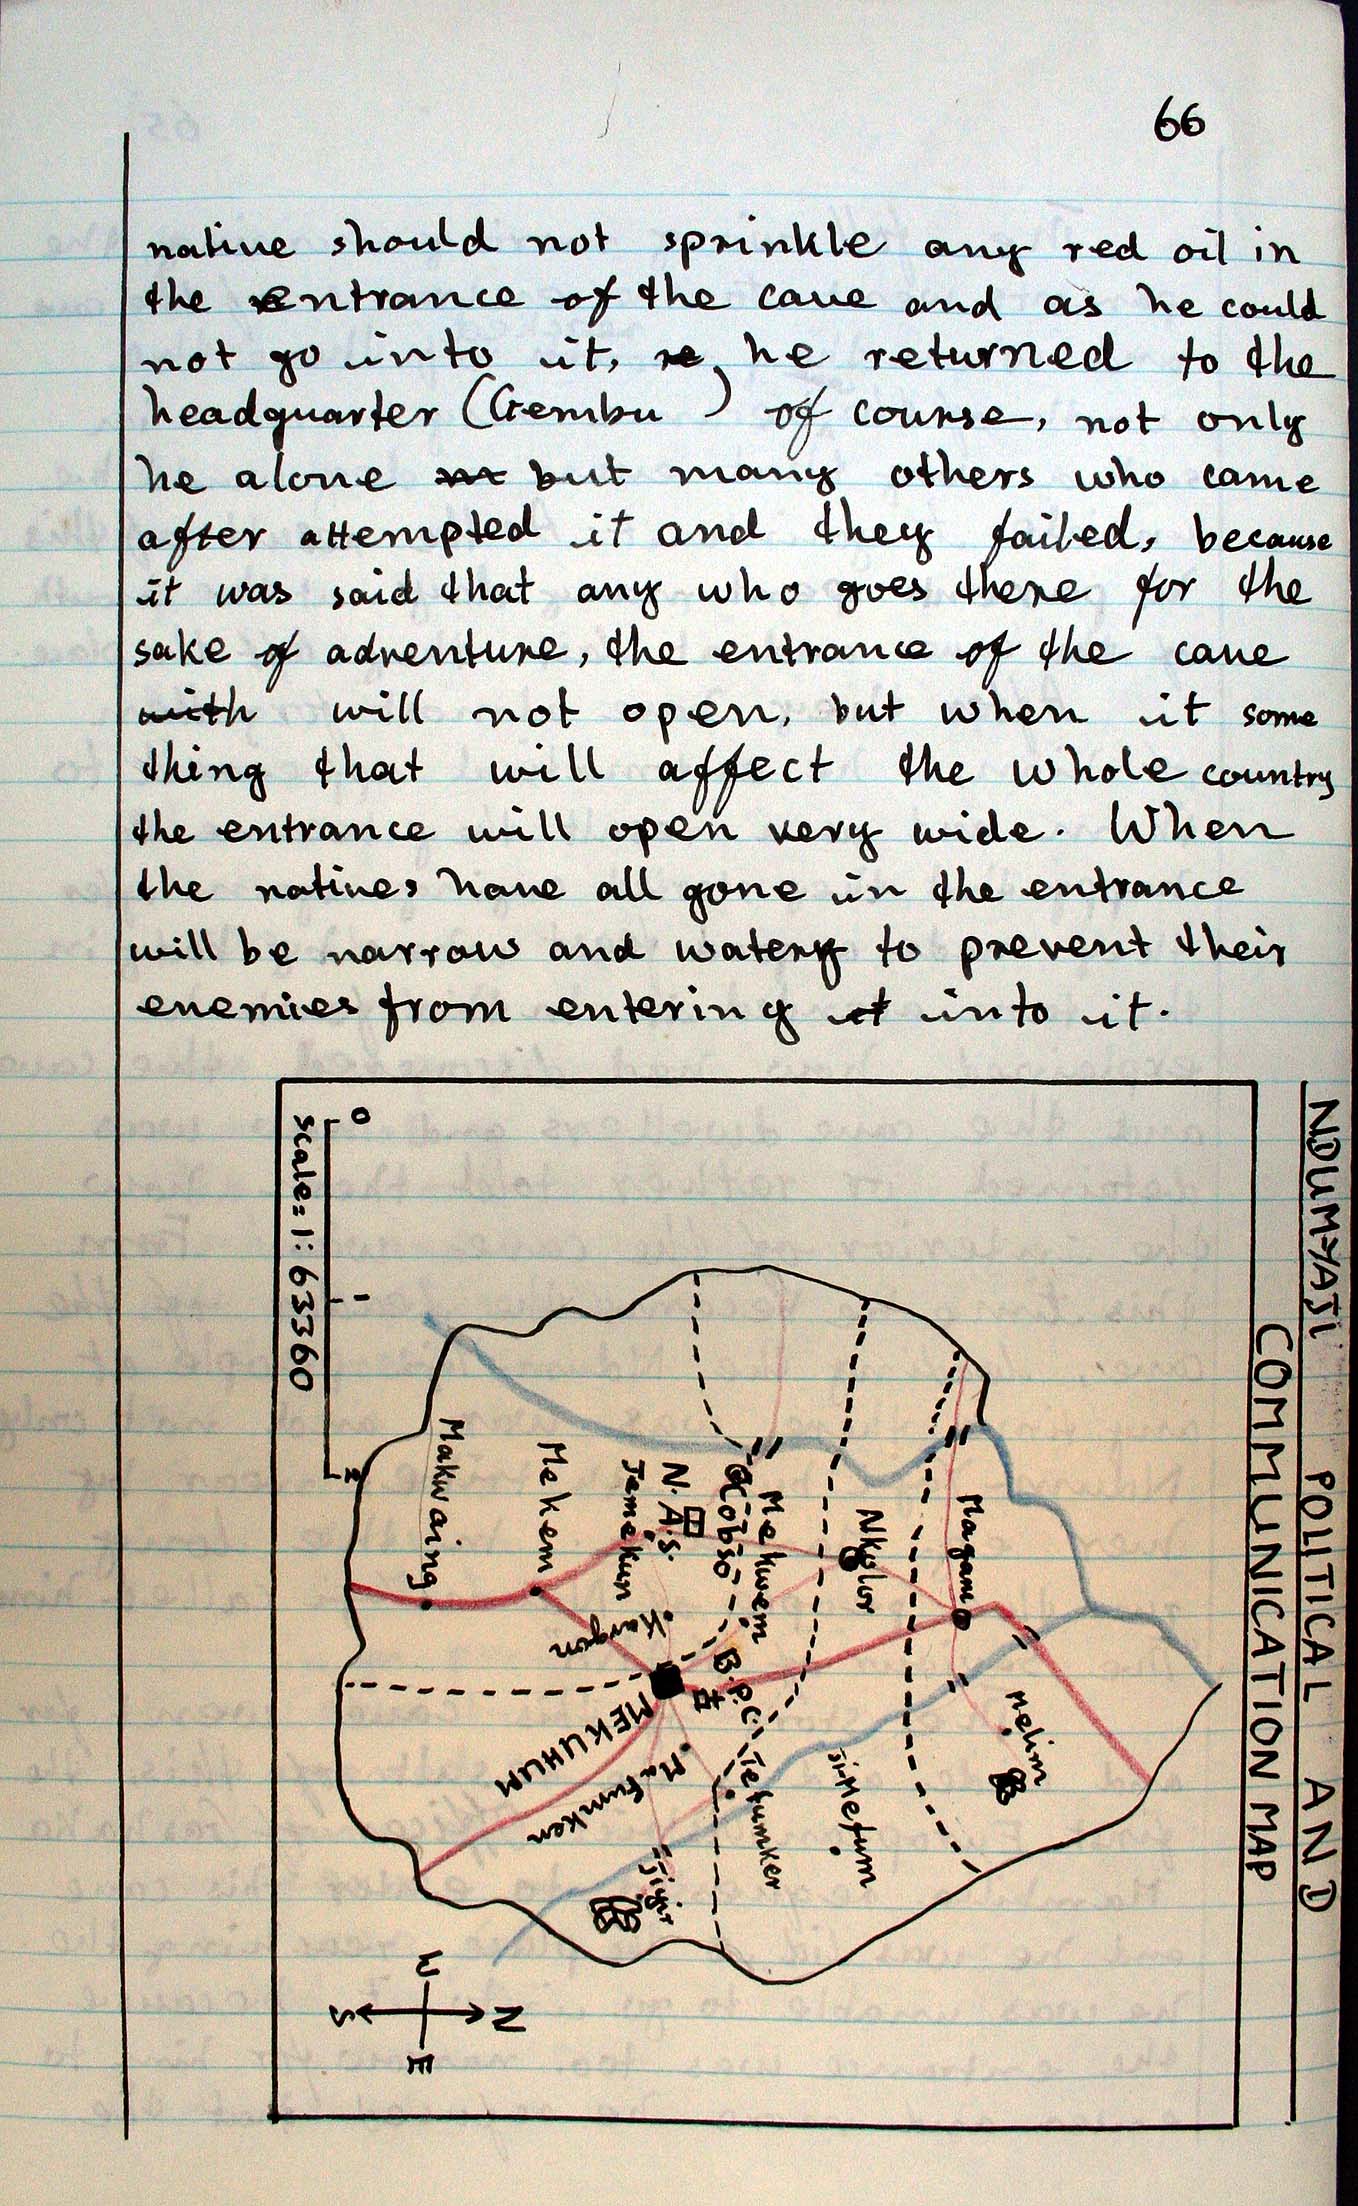 66
native should not sprinkle any red oil in
the entrance of the cave and as he could
not go into it, he returned to the
headquarter (Gembu ) of course, not only
he alone but many others who came
after attempted it and they failed, because
it was said that any who goes there for the
sake of adventure, the entrance of the cave
with will not open, but when it some
thing that will affect the whole country
the entrance will open very wide. When
the natives have all gone in the entrance
will be narrow and watery to prevent their
enemies from entering it into it.
NDUMYAJI POLITICAL AND
COMMUNICATION MAP
Magamo
Melim
Nkolor
Mekwem
Kobso
B.P.C.
Tefumker
Ji-Mefum
N.A.S.
Jemekun
Kargon
MEKUHUM
Mafumken
Jigir
Mekem
Makwaing
scale = 1: 63360
0 1 2
N
W E
S